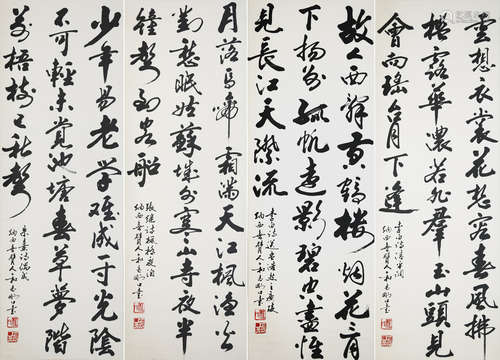 雲想衣裳花想容春風拂
檻露華濃若非群玉山頭見
會向瑤台月下逢
李白詩清平調
納西
故人西辭黃鶴樓烟花三月
下揚州孤帆遠影碧空盡惟
見長江天際流
李白詩送孟浩然之廣陵
納西
月落烏啼霜滿天江楓漁火
對愁眠姑蘇城外寒山寺夜半
鐘聲到客船
張繼詩楓橋夜泊
納西
少年易老學難成一寸光陰
不可輕未覺池塘春草夢階
前梧葉已秋聲
朱熹詩偶成
納西